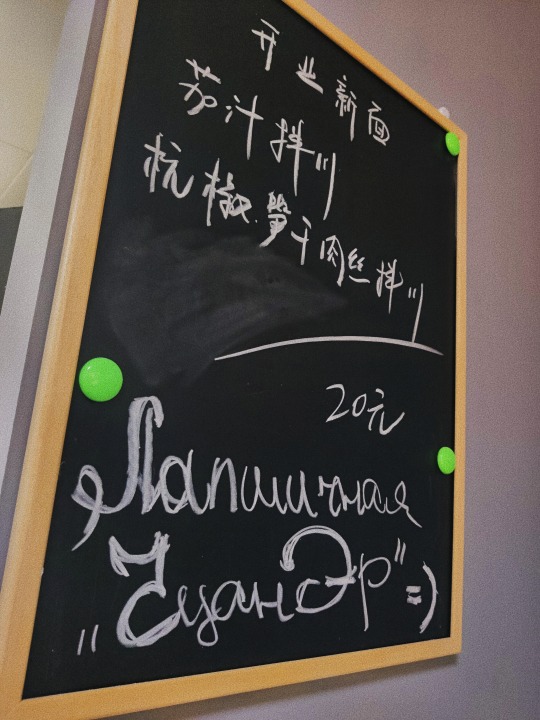 开业新面
茄汁拌川
杭椒笋干肉丝拌川
20元
Лапшичная
„ЧуанЭр" =)